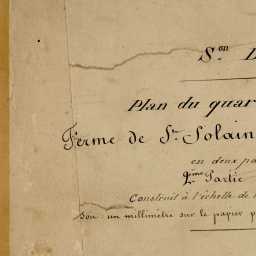 S.on L
Plan du quar
Ferme de St. Solain
en deux pa
2ème Partie
Construit à l'échelle de
Soit un millimètre sur le papier p